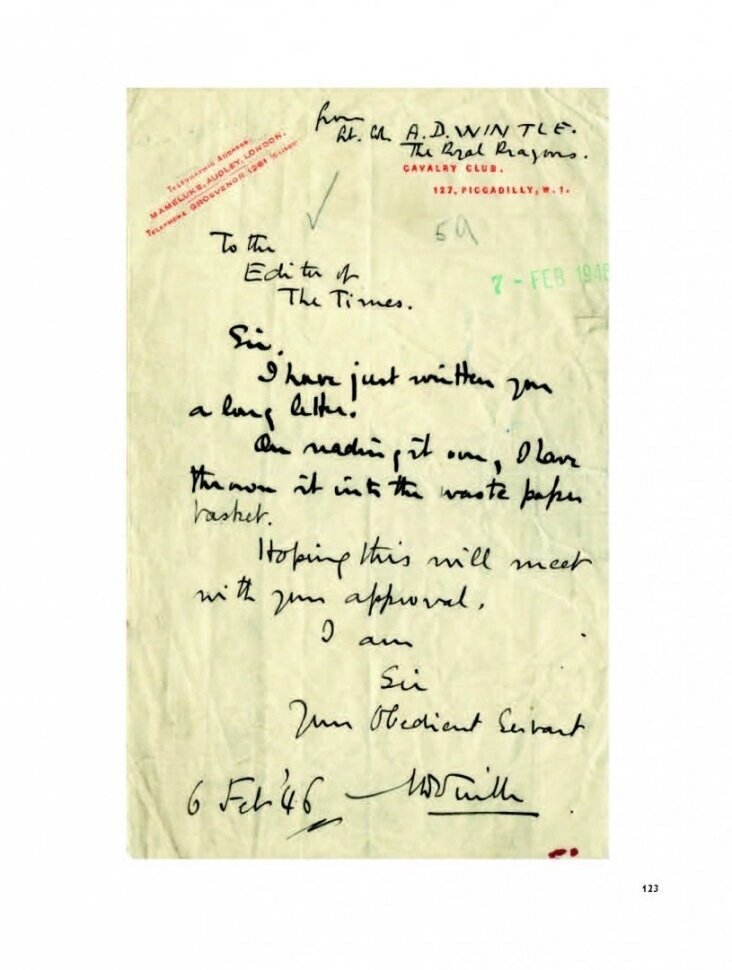 from
Lt. Col. A.D. WINTLE.
The Royal Dragoons.
TELEGRAPHIC ADDRESS:
MAMELUKE, AUDLEY, LONDON.
TELEPHONE GROSVENOR 1261
CAVALRY CLUB.
127, PICCADILLY, W.1.
59
7 - FEB 1946
To the
Editor of
The Times.
Sir,
I have just written you
a long letter.
On reading it over, I have
thrown it into the waste paper
basket.
Hoping this will meet
with your approval,
I am
Sir
Your Obedient Servant
6 Feb '46
ADWintle
123